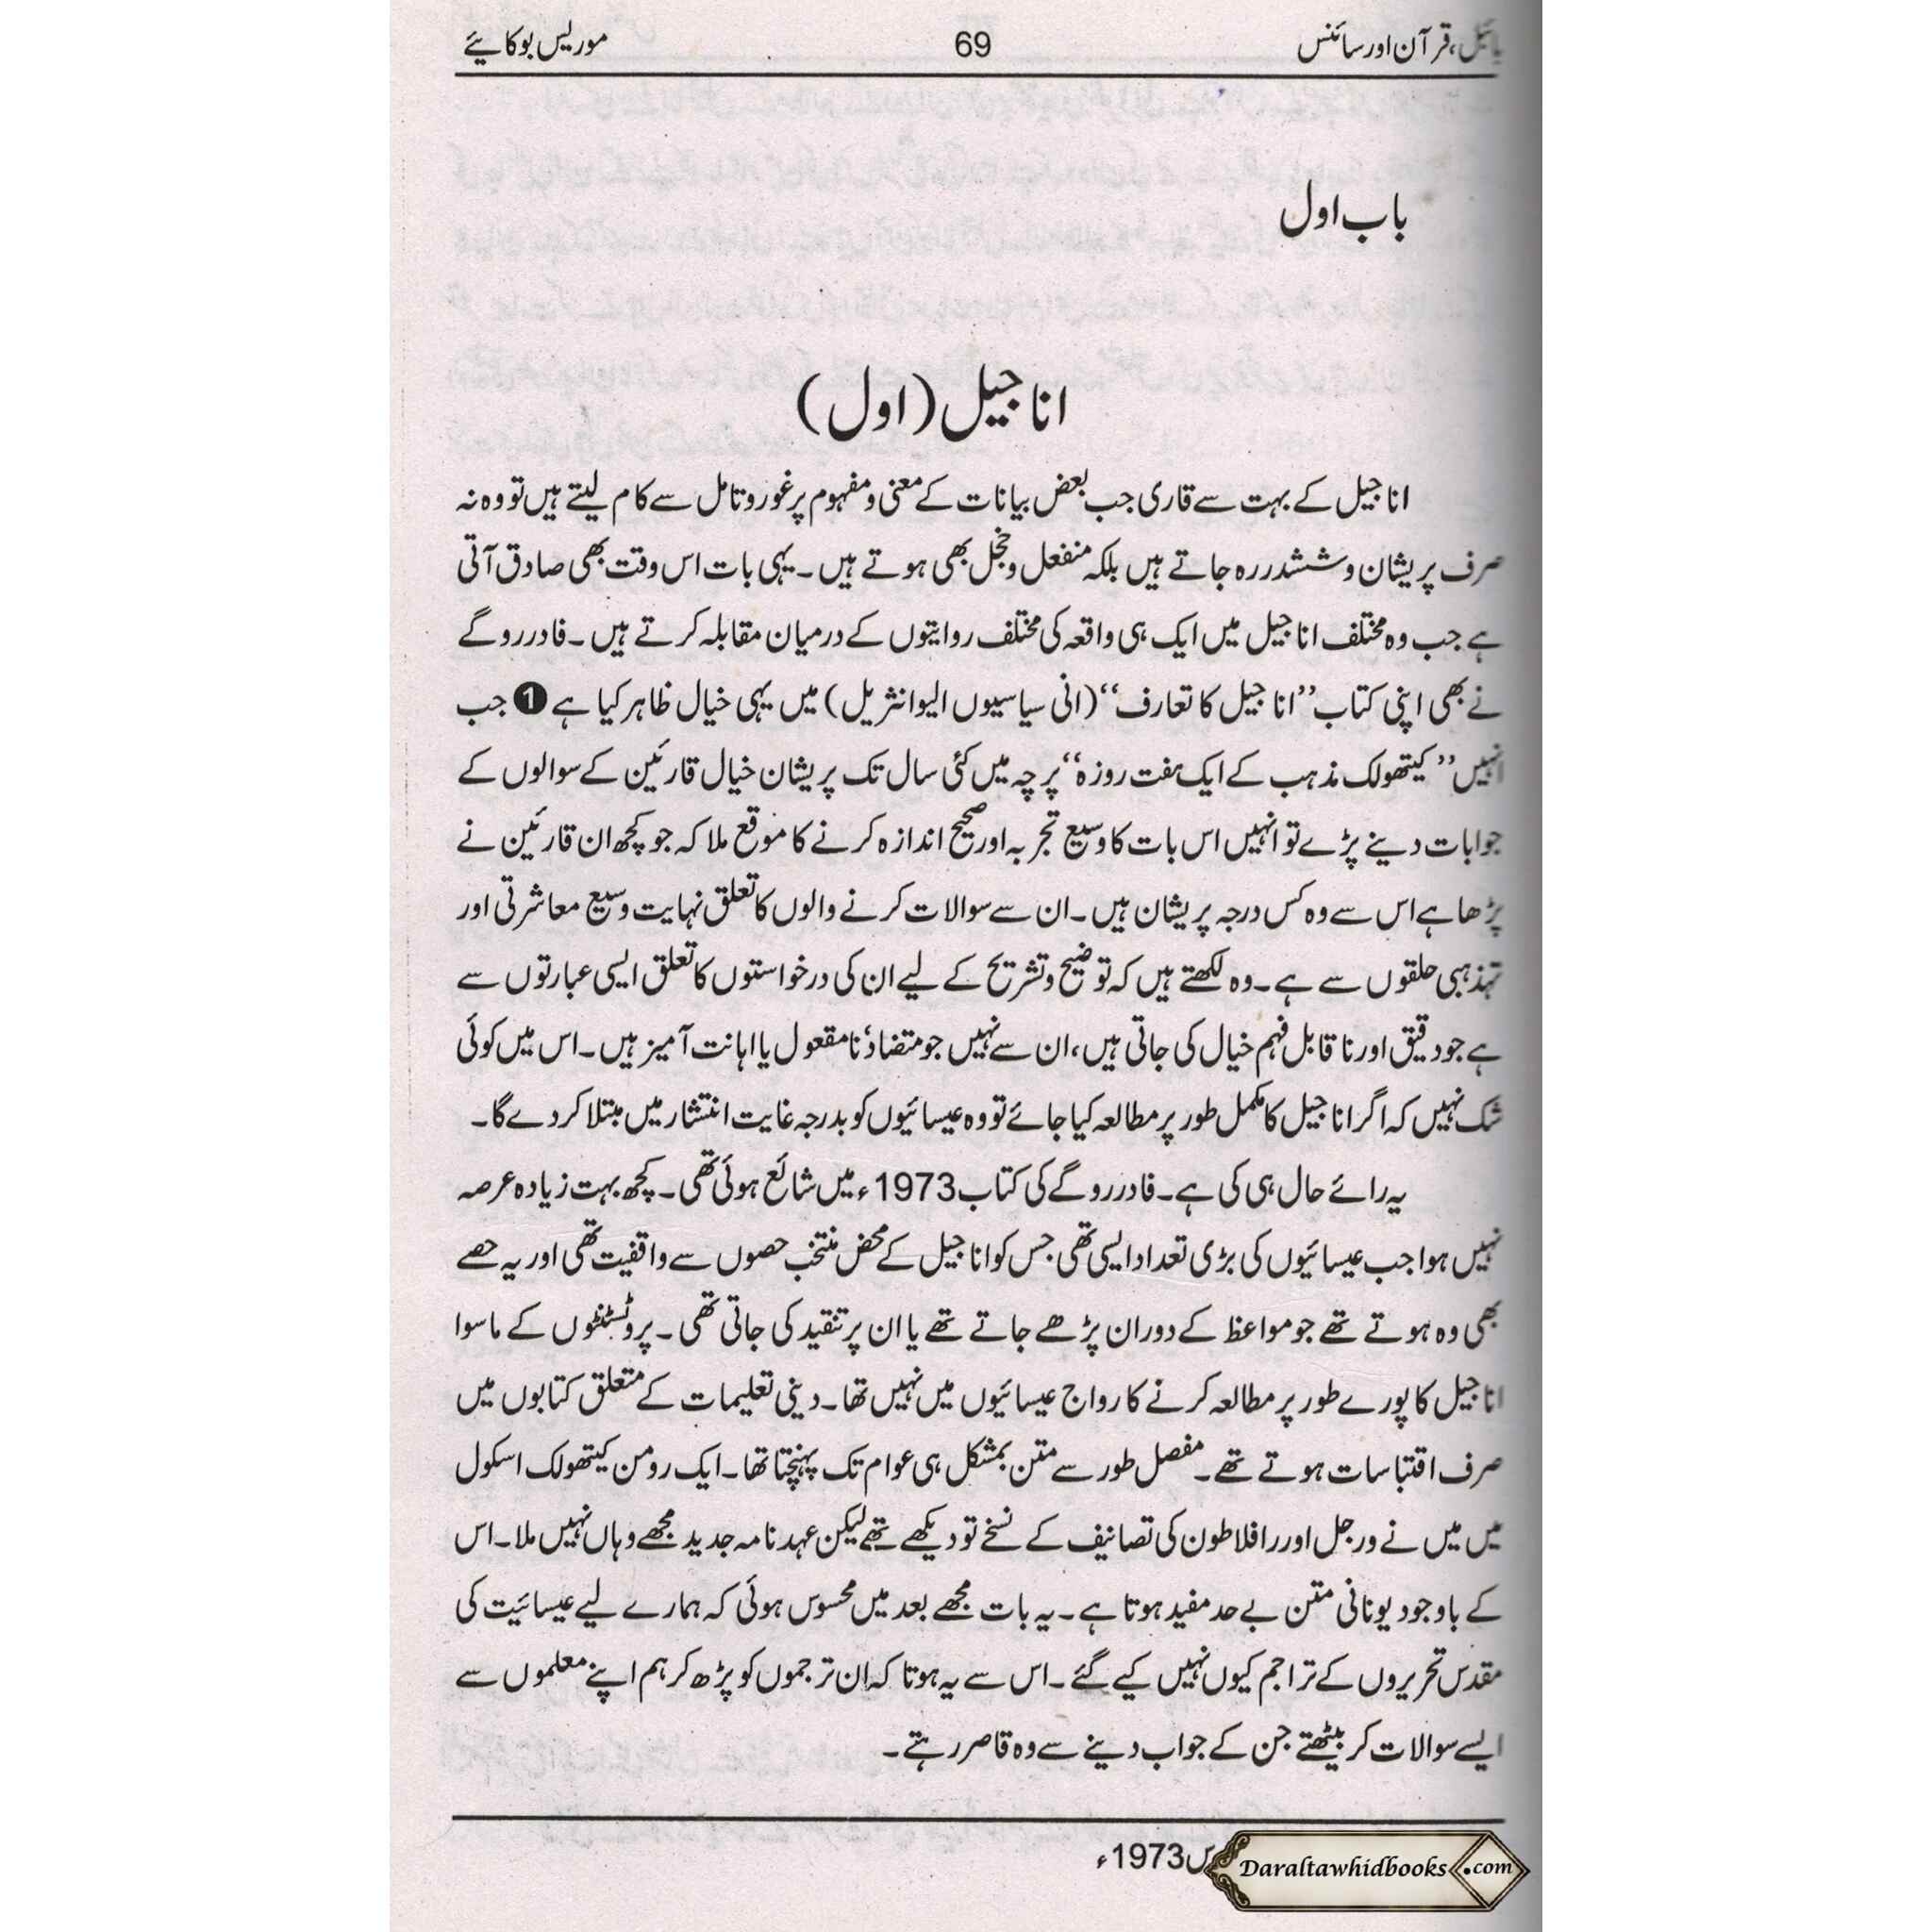 بائبل، قرآن اور سائنس 69 موریس بوکایئے
باب اول
اناجیل (اول)
اناجیل کے بہت سے قاری جب بعض بیانات کے معنی و مفہوم پر غور و تامل سے کام لیتے ہیں تو وہ نہ
صرف پریشان و ششدر رہ جاتے ہیں بلکہ منفعل و خجل بھی ہوتے ہیں۔ یہی بات اس وقت بھی صادق آتی
ہے جب وہ مختلف اناجیل میں ایک ہی واقعہ کی مختلف روایتوں کے درمیان مقابلہ کرتے ہیں۔ فادر روگے
نے بھی اپنی کتاب ”اناجیل کا تعارف“ (انی سیاسیوں الیوانثریل) میں یہی خیال ظاہر کیا ہے 1 جب
انہیں ”کیتھولک مذہب کے ایک ہفت روزہ“ پرچہ میں کئی سال تک پریشان خیال قارئین کے سوالوں کے
جوابات دینے پڑے تو انہیں اس بات کا وسیع تجربہ اور صحیح اندازہ کرنے کا موقع ملا کہ جو کچھ ان قارئین نے
پڑھا ہے اس سے وہ کس درجہ پریشان ہیں۔ ان سے سوالات کرنے والوں کا تعلق نہایت وسیع معاشرتی اور
تہذہبی حلقوں سے ہے۔ وہ لکھتے ہیں کہ توضیح و تشریح کے لیے ان کی درخواستوں کا تعلق ایسی عبارتوں سے
ہے جو دقیق اور ناقابل فہم خیال کی جاتی ہیں، ان سے نہیں جو متضاد، نامقعول یا اہانت آمیز ہیں۔ اس میں کوئی
شک نہیں کہ اگر اناجیل کا مکمل طور پر مطالعہ کیا جائے تو وہ عیسائیوں کو بدرجہ غایت انتشار میں مبتلا کردے گا۔
یہ رائے حال ہی کی ہے۔ فادر روگے کی کتاب 1973ء میں شائع ہوئی تھی۔ کچھ بہت زیادہ عرصہ
نہیں ہوا جب عیسائیوں کی بڑی تعداد ایسی تھی جس کو اناجیل کے محض منتخب حصوں سے واقفیت تھی اور یہ حصے
بھی وہ ہوتے تھے جو مواعظ کے دوران پڑھے جاتے تھے یا ان پر تنقید کی جاتی تھی۔ پروٹسٹنٹوں کے ماسوا
اناجیل کا پورے طور پر مطالعہ کرنے کا رواج عیسائیوں میں نہیں تھا۔ دینی تعلیمات کے متعلق کتابوں میں
صرف اقتباسات ہوتے تھے۔ مفصل طور سے متن بمشکل ہی عوام تک پہنچتا تھا۔ ایک رومن کیتھولک اسکول
میں میں نے ورجل اور رافلاطون کی تصانیف کے نسخے تو دیکھے تھے لیکن عہدنامہ جدید مجھے وہاں نہیں ملا۔ اس
کے باوجود یونانی متن بے حد مفید ہوتا ہے۔ یہ بات مجھے بعد میں محسوس ہوئی کہ ہمارے لیے عیسائیت کی
مقدس تحریروں کے تراجم کیوں نہیں کیے گئے۔ اس سے یہ ہوتا کہ ان ترجموں کو پڑھ کر ہم اپنے معلموں سے
ایسے سوالات کر بیٹھتے جن کے جواب دینے سے وہ قاصر رہتے۔
1973ء
Daraltawhidbooks.com